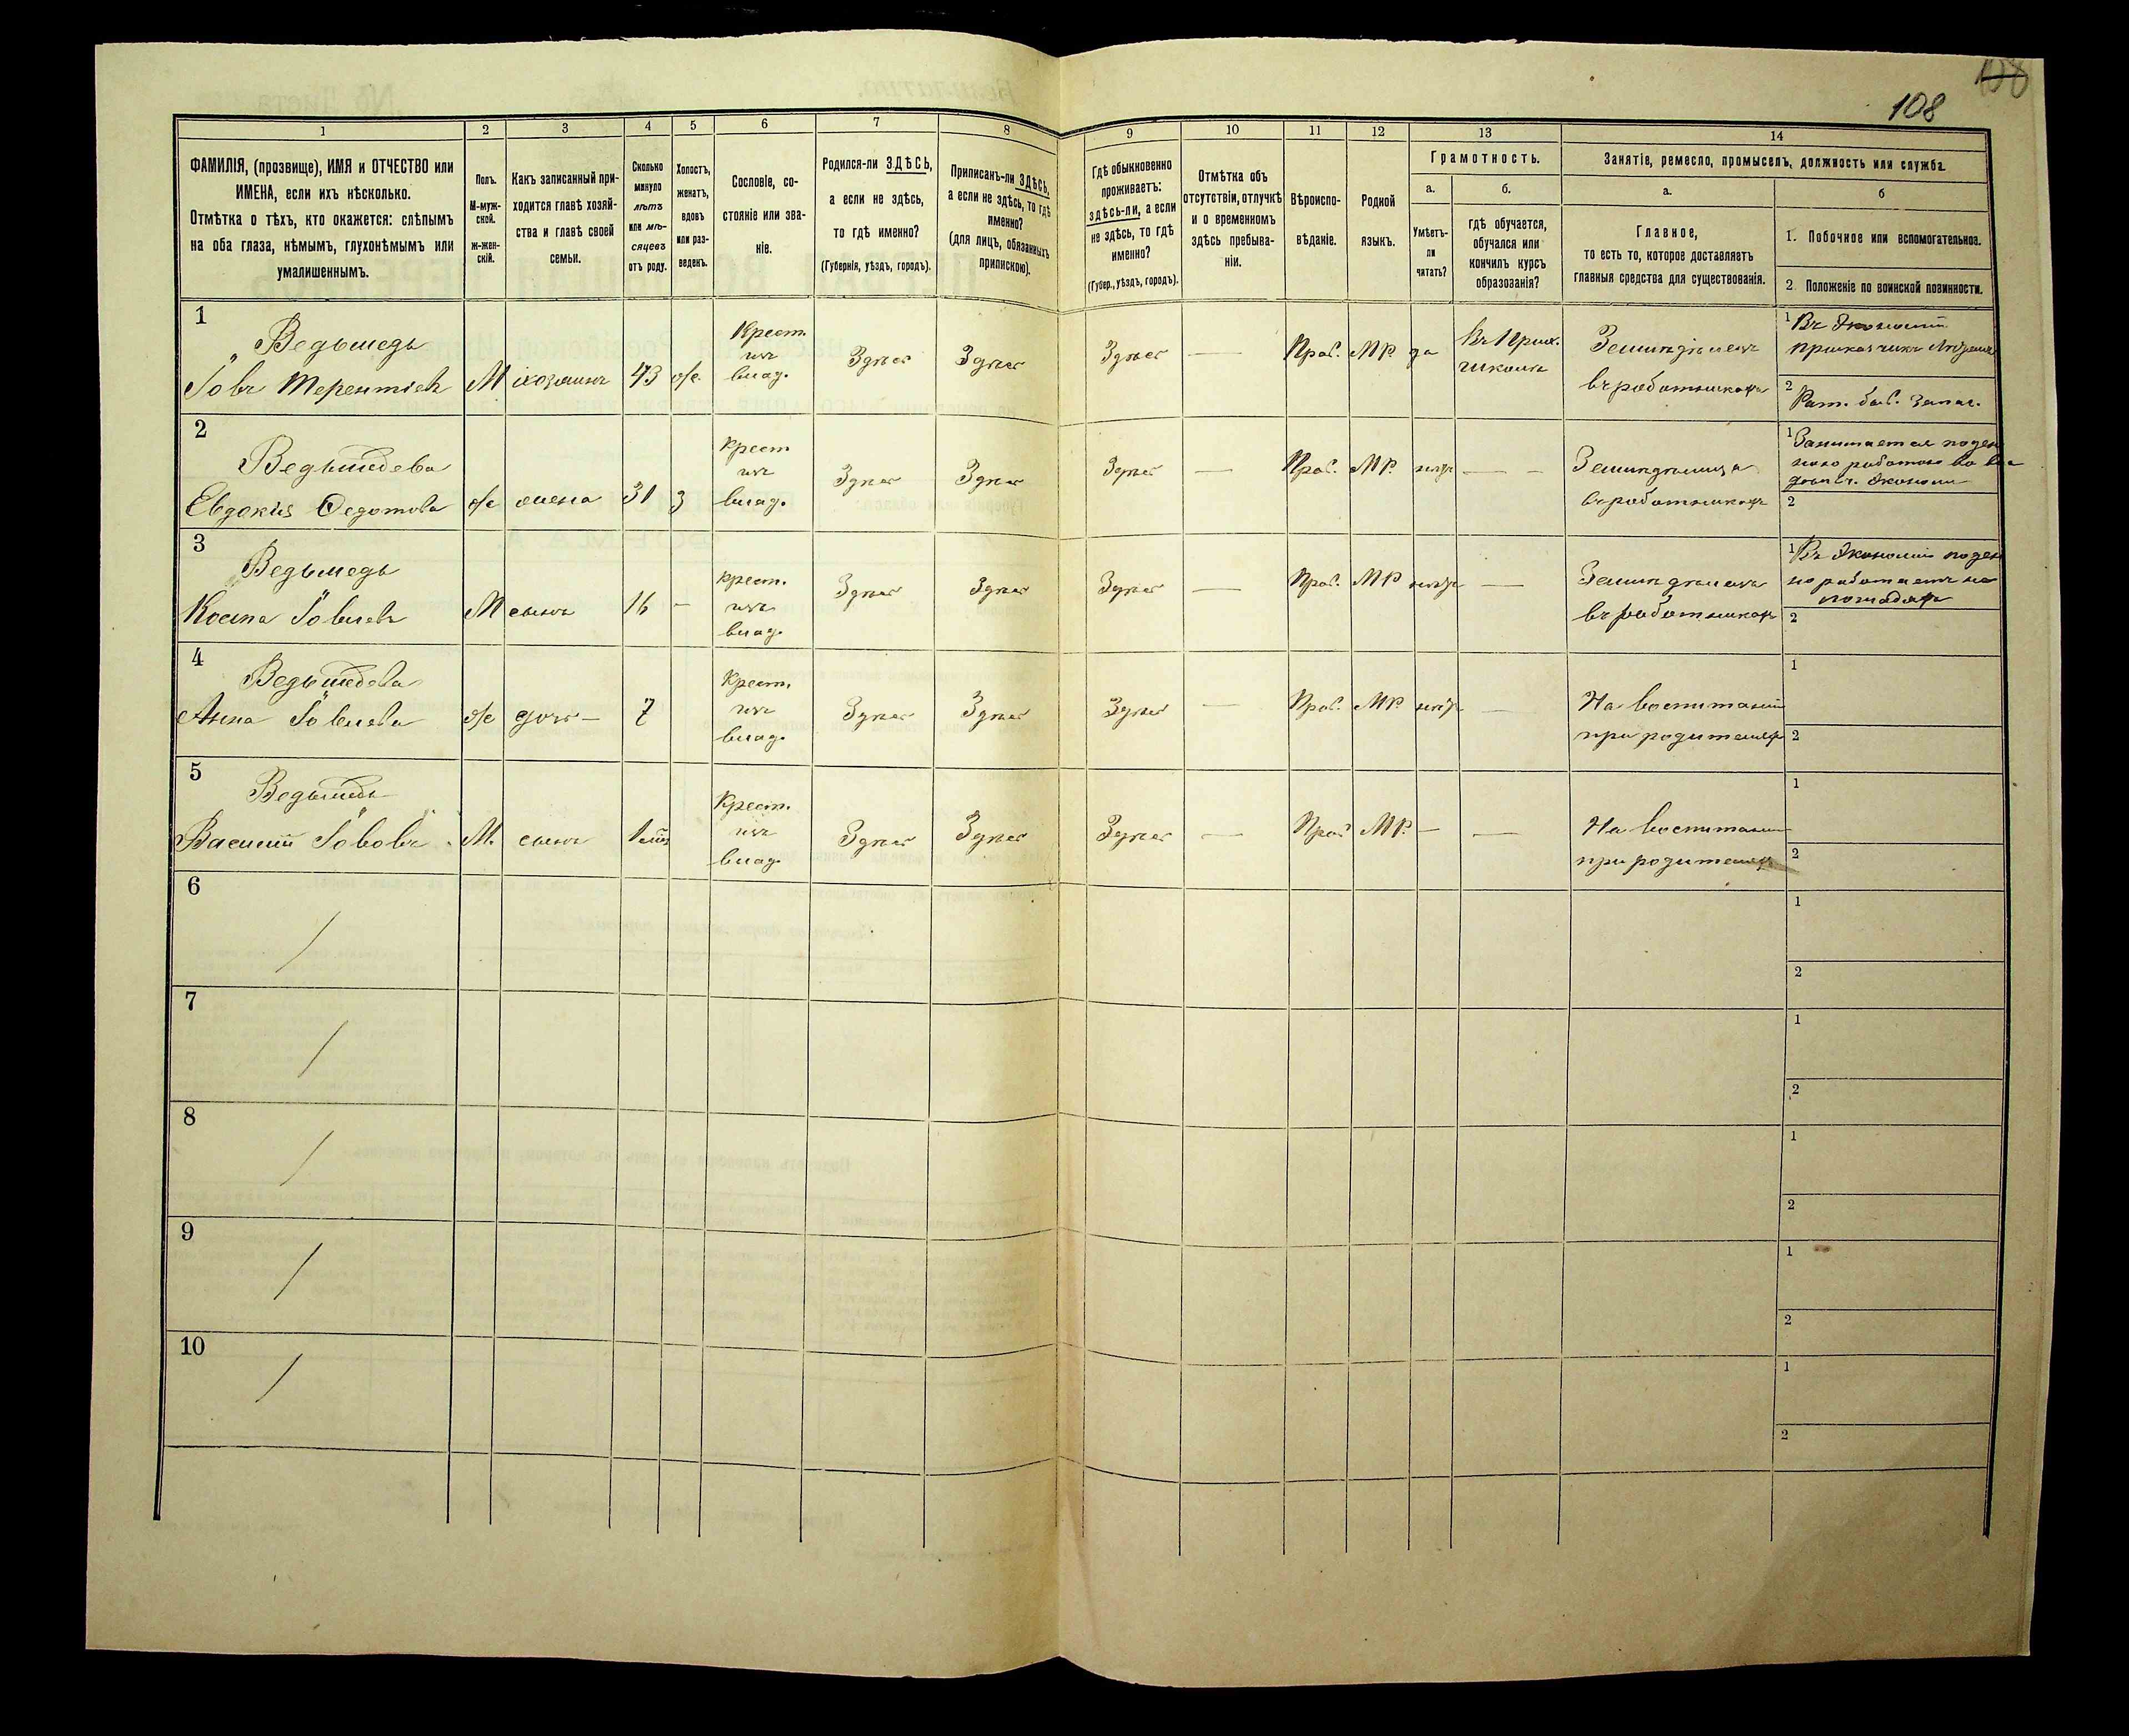 108
108
1
2
3
4
5
6
7
8
9
10
11
12
13
14
ФАМИЛІЯ, (прозвище), ИМЯ и ОТЧЕСТВО или
ИМЕНА, если ихъ нѣсколько.
Отмѣтка о тѣхъ, кто окажется: слѣпымъ
на оба глаза, нѣмымъ, глухонѣмымъ или
умалишеннымъ.
Полъ.
М-муж-
ской.
ж-жен-
скій.
Какъ записанный при-
ходится главѣ хозяй-
ства и главѣ своей
семьи.
Сколько
минуло
лѣтъ
или мѣ-
сяцевъ
отъ роду.
Холостъ,
женатъ,
вдовъ
или раз-
веденъ.
Сословіе, со-
стояніе или зва-
ніе.
Родился-ли ЗДѢСЬ,
а если не здѣсь,
то гдѣ именно?
(Губернія, уѣздъ, городъ).
Приписанъ-ли ЗДѢСЬ,
а если не здѣсь, то гдѣ
именно?
(для лицъ, обязанныхъ
припискою).
Гдѣ обыкновенно
проживаетъ:
здѣсь-ли, а если
не здѣсь, то гдѣ
именно?
(Губер., уѣздъ, городъ).
Отмѣтка объ
отсутствіи, отлучкѣ
и о временномъ
здѣсь пребыва-
ніи.
Вѣроиспо-
вѣданіе.
Родной
языкъ.
Грамотность.
а.
Умѣетъ-
ли
читать?
б.
гдѣ обучается,
обучался или
кончилъ курсъ
образованія?
Занятіе, ремесло, промыселъ, должность или служба.
а.
Главное,
то есть то, которое доставляетъ
главныя средства для существованія.
б
1. Побочное или вспомогательное.
2 Положеніе по воинской повинности.
1
Ведьмедь
Іовъ Терентіевъ
М
хозяинъ
43
ж.
Крест.
изъ
влад.
Здѣсь
Здѣсь
Здѣсь
—
Прав.
МР.
да
Земледѣлецъ
въ работникахъ
1 Въ Экономіи
приказчикъ
2
2
Ведьмедева
Евдокія Федотова
ж
жена
31
з
Крест
изъ
влад.
Здѣсь
Здѣсь
Здѣсь
—
Прав.
МР.
нѣтъ
— —
въ работникахъ
1 Занимается поден
ною работою
2
3
Ведьмедь
Косма Іовлевъ
М
сынъ
16
-
крест.
изъ
влад.
Здѣсь
Здѣсь
Здѣсь
—
Прав.
МР
нѣтъ
—
Земледѣлецъ
въ работникахъ
1 Въ Экономіи поден
но работаетъ на
лошадях
2
4
Ведьмедева
Анна Іовлева
ж
дочь —
7
Крест.
изъ
влад.
Здѣсь
Здѣсь
Здѣсь
—
Прав.
МР.
нѣтъ
—
На воспитаніи
при родителях
1
2
5
Ведьмедь
Василій Іововъ
М.
сынъ
Крест.
изъ
влад.
Здѣсь
Здѣсь
Здѣсь
—
Прав
МР.
—
—
На воспитаніи
при родителях
1
2
6
1
2
7
1
2
8
1
2
9
1
2
10
1
2